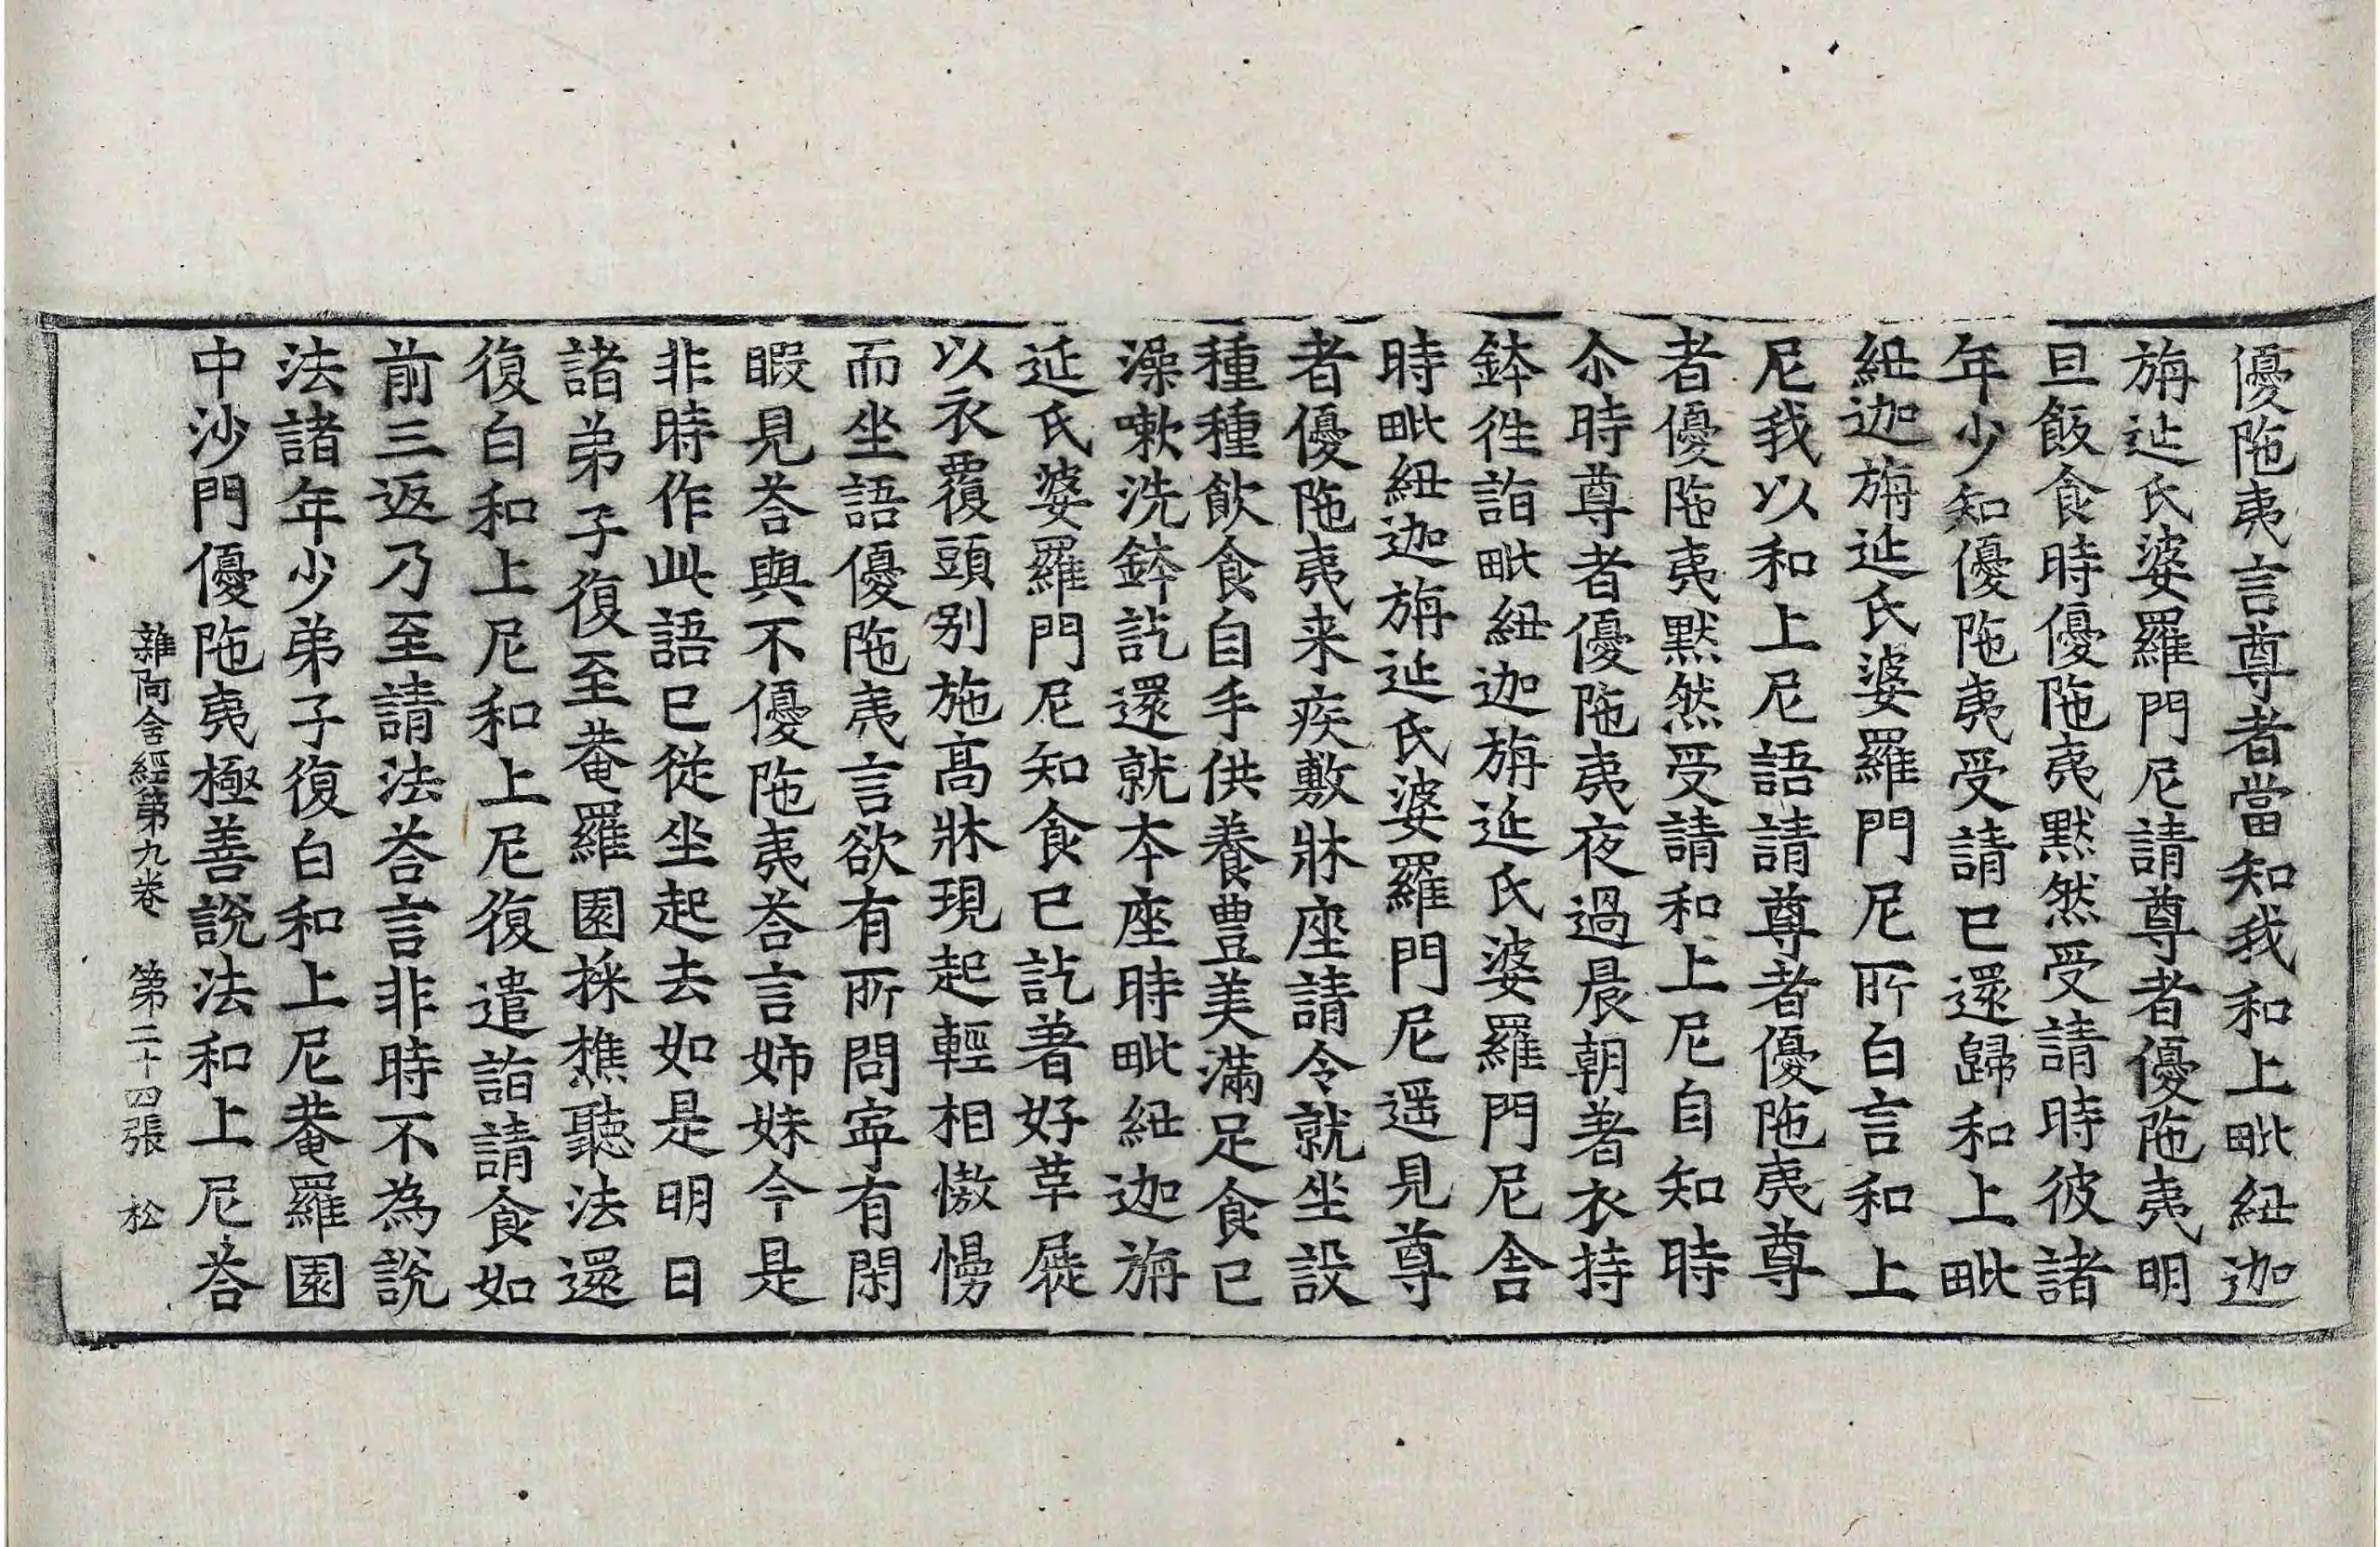 優陁夷言尊者當知我和上毗紐迦
旃延氏婆羅門尼請尊者優陁夷明
旦飯食時優陁夷黙然受請時彼諸
年少知優陁夷受請已還歸和上毗
紐迦旃延氏婆羅門尼所白言和上
尼我以和上尼語請尊者優陁夷尊
者優陁夷黙然受請和上尼自知時
尒時尊者優陁夷夜過晨朝著衣持
鉢徃詣毗紐迦旃延氏婆羅門尼舎
時毗紐迦旃延氏婆羅門尼遥見尊
者優陁夷来疾敷牀座請令就坐設
種種飲食自手供養豊美滿足食已
澡嗽洗鉢訖還就本座時毗紐迦旃
延氏婆羅門尼知食已訖著好革屣
以衣覆頭别施髙牀現起輕相慠慢
而坐語優陁夷言欲有所問寜有閑
暇見荅與不優陁夷荅言姉妹今是
非時作此語已從坐起去如是明日
諸弟子復至菴羅園採樵聽法還
復白和上尼和上尼復遣詣請食如
前三返乃至請法荅言非時不為說
法諸年少弟子復白和上尼菴羅園
中沙門優陁夷極善説法和上尼荅
雜阿含經第九卷　第二十四張　松